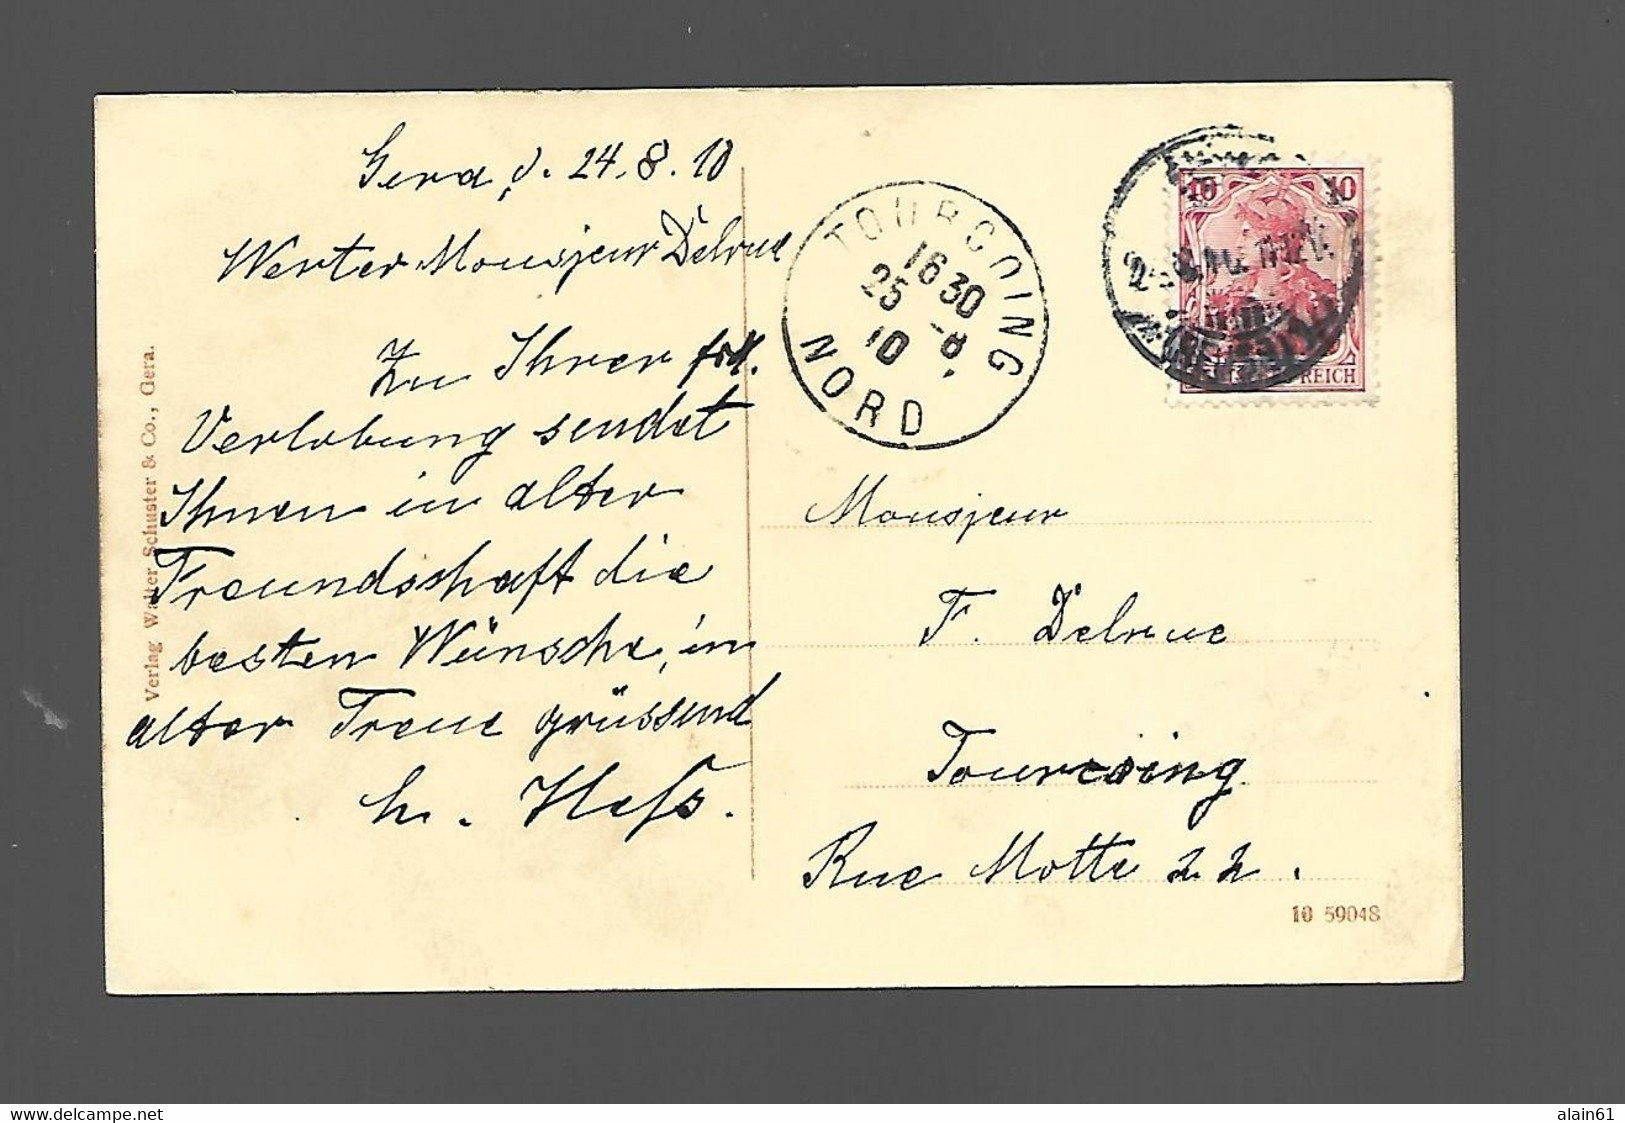 Gera, d. 24. 8. 10
Werter Monsjeur Delrue
Zu Ihrer
Verlobung sendet
Ihnen in alter
Freundschaft die
besten Wünsche, in
alter Treue grüssend
H. Hess.
Verlag Walter Schuster & Co., Gera.
TOURCOING
16 30
25 - 8
10
NORD
10 10
REICH
Monsjeur
F. Delrue
Tourcoing
Rue Motte 22.
10 59048
delcampe.net
alain61